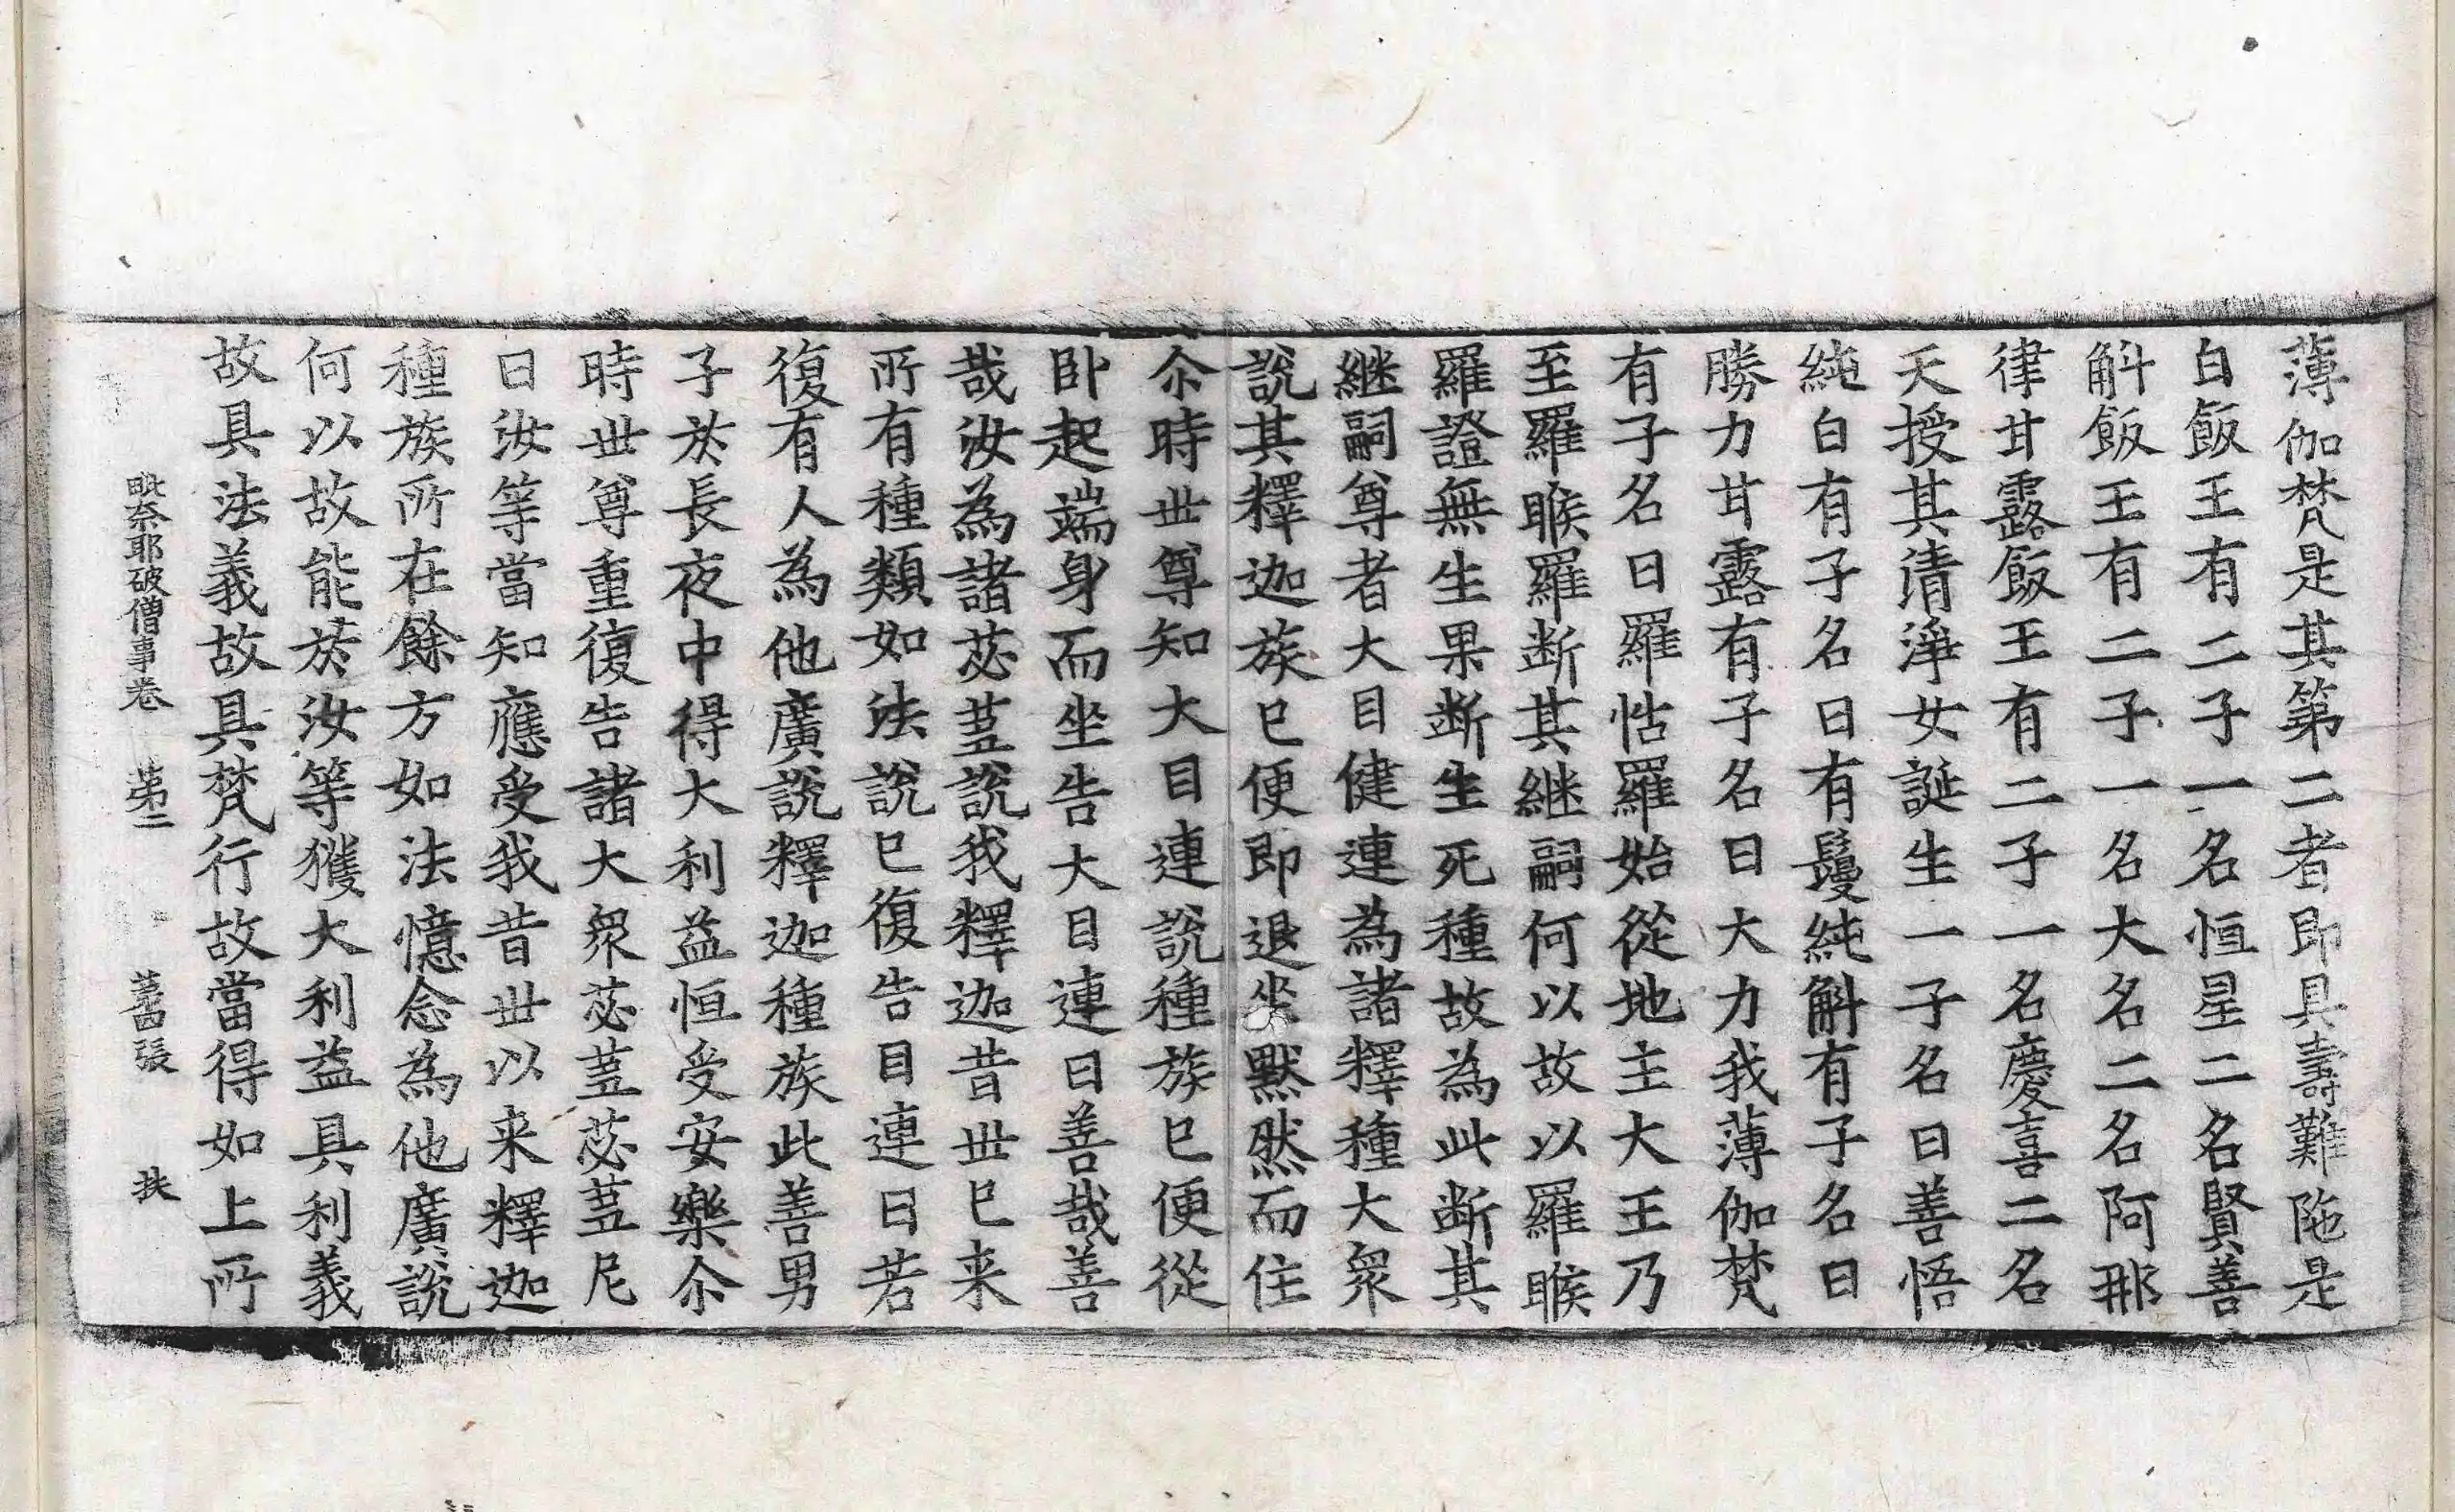 薄伽梵是其第二者即具壽難陁是
白飯王有二子一名恒星二名賢善
斛飯王有二子一名大名二名阿那
律甘露飯王有二子一名慶喜二名
天授其清淨女誕生一子名曰善悟
純白有子名曰有鬘純斛有子名曰
勝力甘露有子名曰大力我薄伽梵
有子名曰羅怙羅始從地主大王乃
至羅睺羅断其継嗣何以故以羅睺
羅證無生果断生死種故為此断其
継嗣尊者大目健連為諸釋種大衆
說其釋迦族已便即退坐默然而住
尒時世尊知大目連說種族已便從
卧起端身而坐告大目連曰善哉善
哉汝為諸苾蒭說我釋迦昔世已来
所有種類如法說已復告目連曰若
復有人為他廣說釋迦種族此善男
子於長夜中得大利益恒受安樂尒
時世尊重復告諸大衆苾蒭苾蒭尼
曰汝等當知應受我昔世以来釋迦
種族所在餘方如法憶念為他廣說
何以故能於汝等獲大利益具利義
故具法義故具梵行故當得如上所
毗奈耶破僧事卷 第二 張 扶